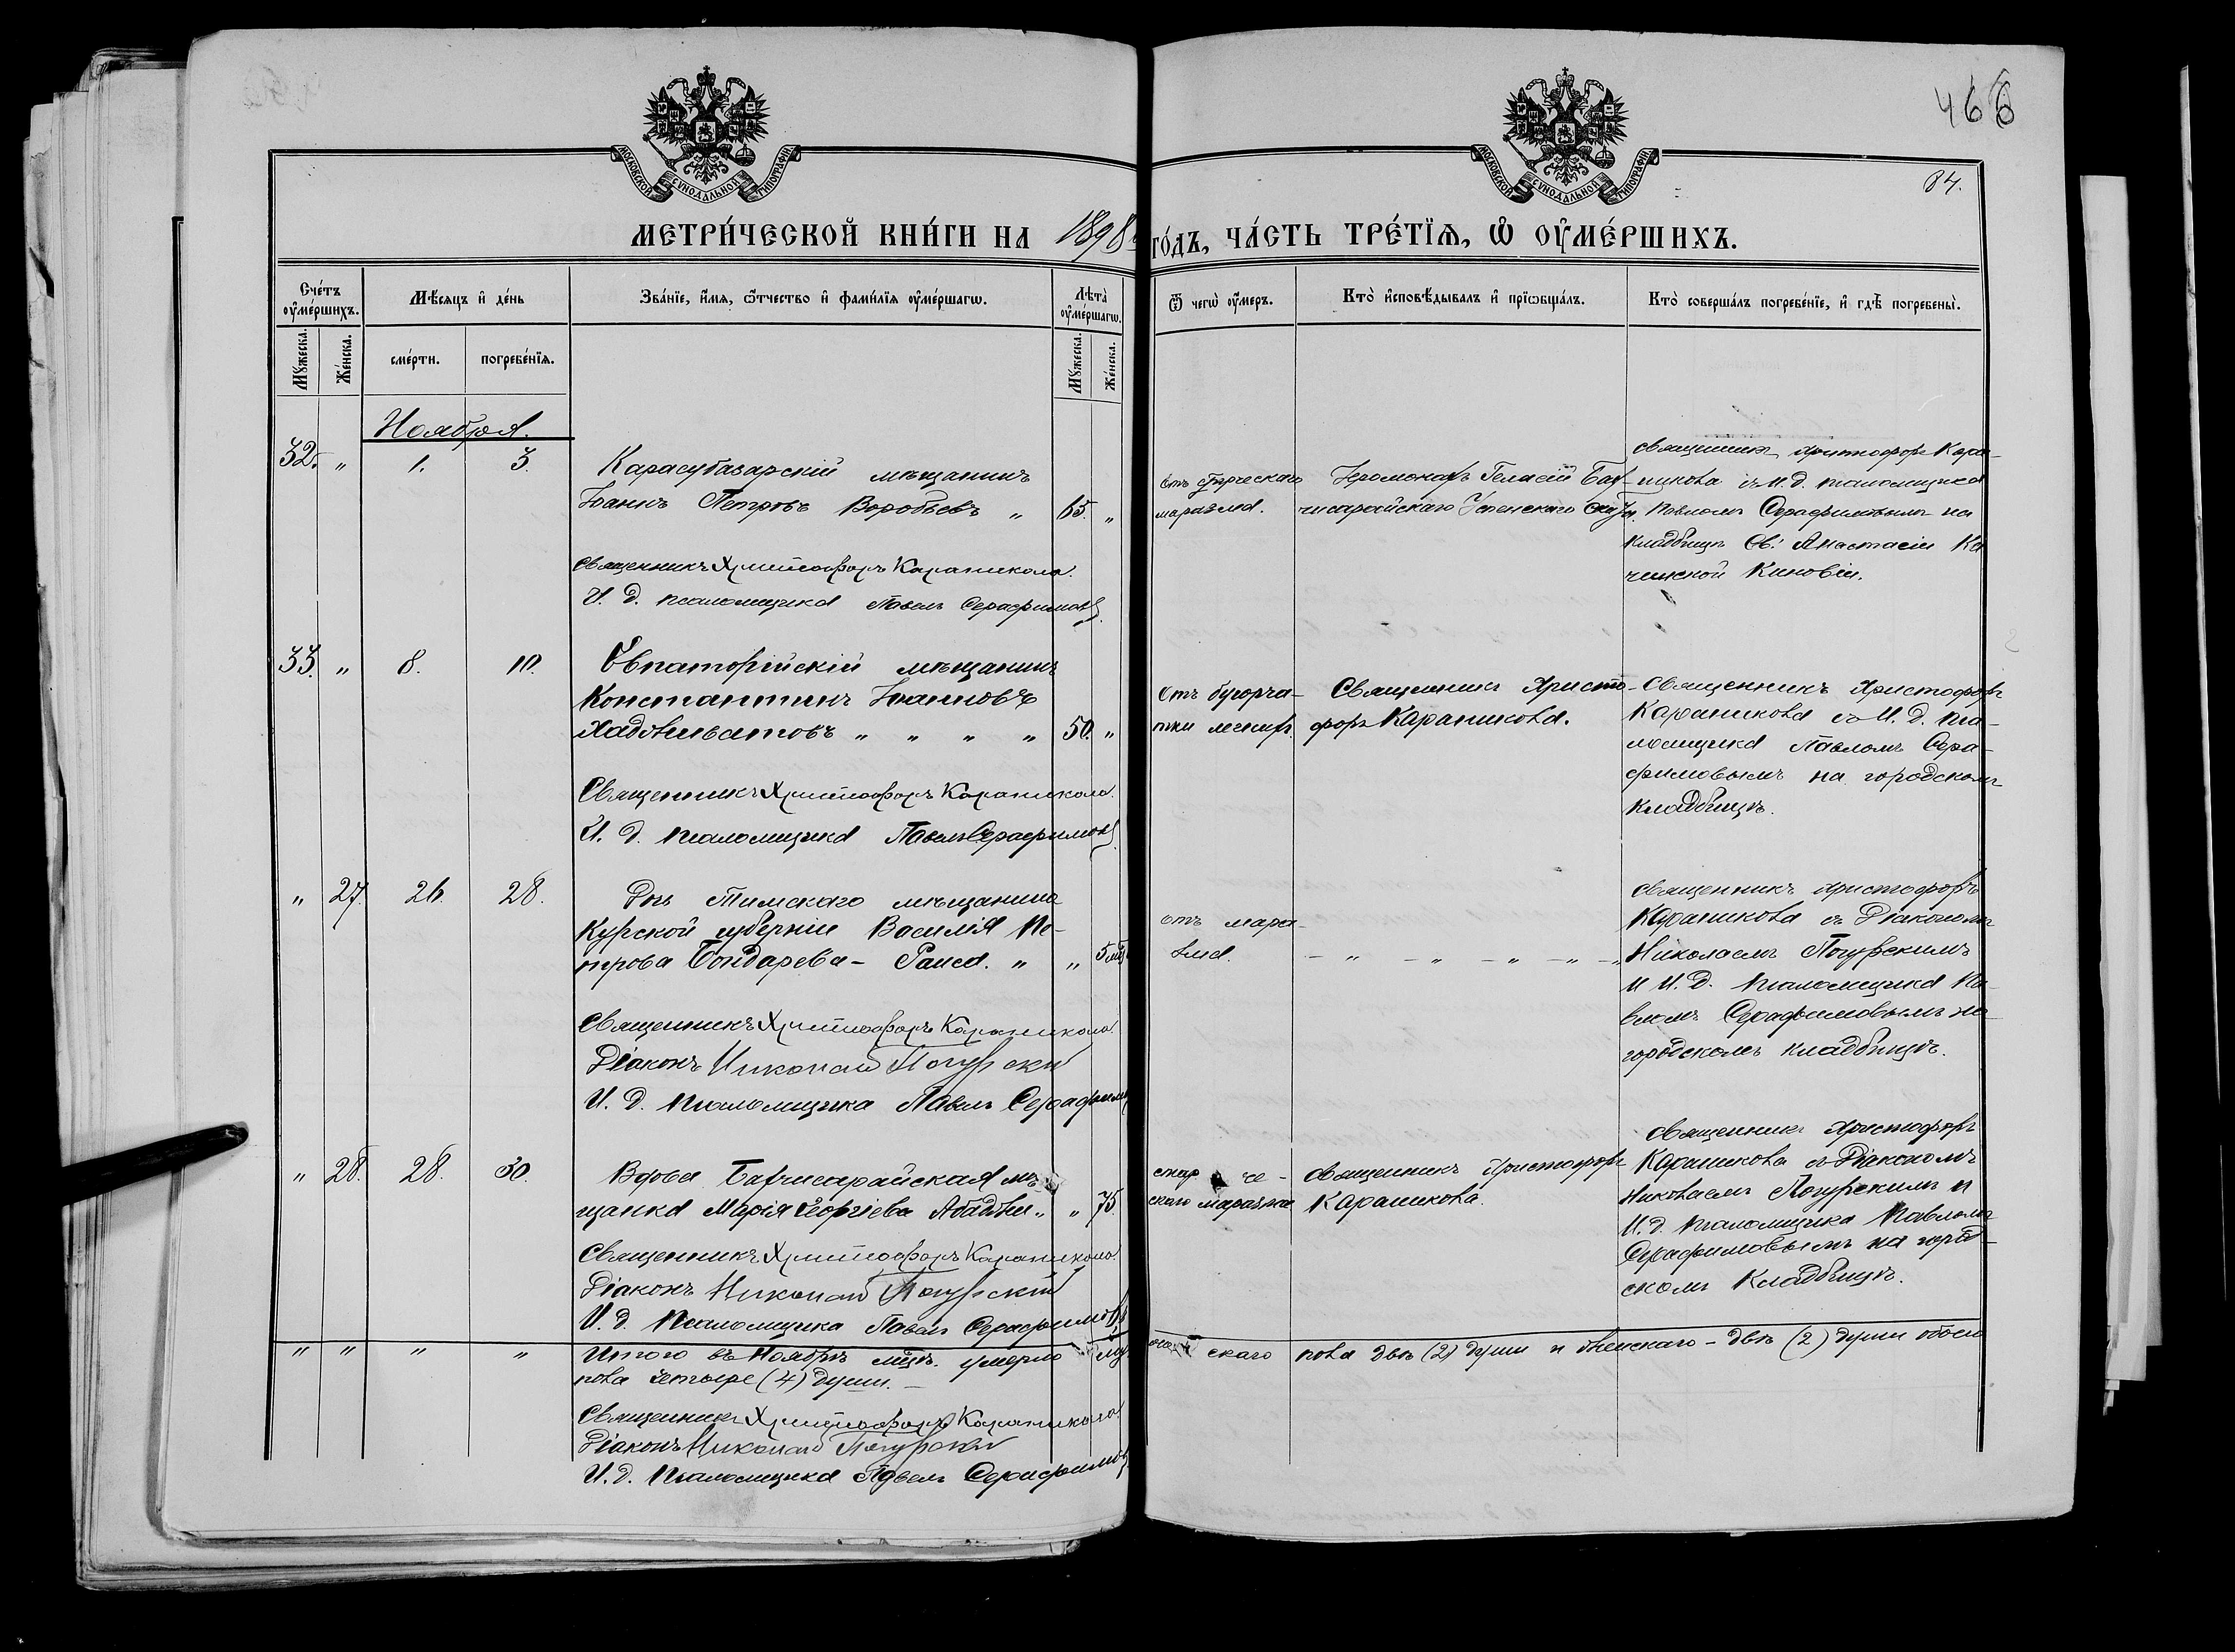 466
84.
МОСКОВСКОЙ СѴНОДАЛЬНОЙ ТИПОГРАФІИ
МОСКОВСКОЙ СѴНОДАЛЬНОЙ ТИПОГРАФІИ
МЕТРИ́ЧЕСКОЙ КНИ́ГИ НА 1898 ГО́ДЪ, ЧА́СТЬ ТРЕ́ТЇѦ, Ѡ ОУМЕ́РШИХЪ.
Сче́тъ оумершихъ.
Мѣ́сяцъ и де́нь
Зва́нїе, и́мѧ, ѿчество и фами́лїѧ оуме́ршагѡ.
Лѣта̀ оуме́ршагѡ.
Ѿ чегѡ̀ оу́меръ.
Кто̀ исповѣ́дывалъ и прїѡбща́лъ.
Кто̀ соверша́лъ погребе́нїе, и гдѣ̀ погребены̀.
Мꙋ́жеска.
Же́нска.
сме́рти.
погребе́нїѧ.
Мꙋ́жеска.
Же́нска.
Ноября.
32. " 1. 3.
Карасубазарскій мѣщанинъ
Іоаннъ Петровъ Воробьевъ " 65. "
Священникъ Христофоръ Караникола.
И. д. псаломщика Павелъ Серафимовъ
отъ старческаго
маразма.
Іеромонахъ Геласій Бах-
чисарайскаго Успенскаго скита.
Священникъ Христофоръ Кара-
никола съ И. д. псаломщика
Павломъ Серафимовымъ на
кладбищѣ Св. Анастасіи Ка
чинской Киновіи.
33. " 8. 10.
Евпаторійскій мѣщанинъ
Константинъ Іоанновъ
Хадживатовъ " " " " 50. "
Священникъ Христофоръ Караникола.
И. д. псаломщика Павелъ Серафимовъ
Отъ бугорча-
тки легкихъ.
Священникъ Христо-
форъ Караникола.
Священникъ Христофоръ
Караникола съ И. д. пса-
ломщика Павломъ Сера-
фимовымъ на городскомъ
кладбищѣ.
" 27. 26. 28.
Дочь Тимскаго мѣщанина
Курской губерніи Василія Пе-
трова Бондарева - Раиса. " " 5 мѣс
Священникъ Христофоръ Караникола
Діаконъ Николай Погурскій
И. д. псаломщика Павелъ Серафимовъ
отъ мараз-
ма.
- " - " - " - " - "
Священникъ Христофоръ
Караникола съ Діакономъ
Николаемъ Погурскимъ
и И. д. псаломщика Па-
вломъ Серафимовымъ на
городскомъ кладбищѣ.
" 28. 28. 30.
Вдова Бахчисарайская мѣ-
щанка Марія Георгіева Абаджи " " 75.
Священникъ Христофоръ Караникола
Діаконъ Николай Погурскій
И. д. псаломщика Павелъ Серафимовъ
старче-
скаго маразма
Священникъ Христофоръ
Караникола.
Священникъ Христофоръ
Караникола съ Діакономъ
Николаемъ Погурскимъ и
И. д. псаломщика Павломъ
Серафимовымъ на город-
скомъ кладбищѣ.
" " " "
Итого въ Ноябрѣ мѣс. умерло муж скаго пола двѣ (2) души и женскаго - двѣ (2) души обоего
пола четыре (4) души. -
Священникъ Христофоръ Караникола
Діаконъ Николай Погурскій
И. д. псаломщика Павелъ Серафимовъ